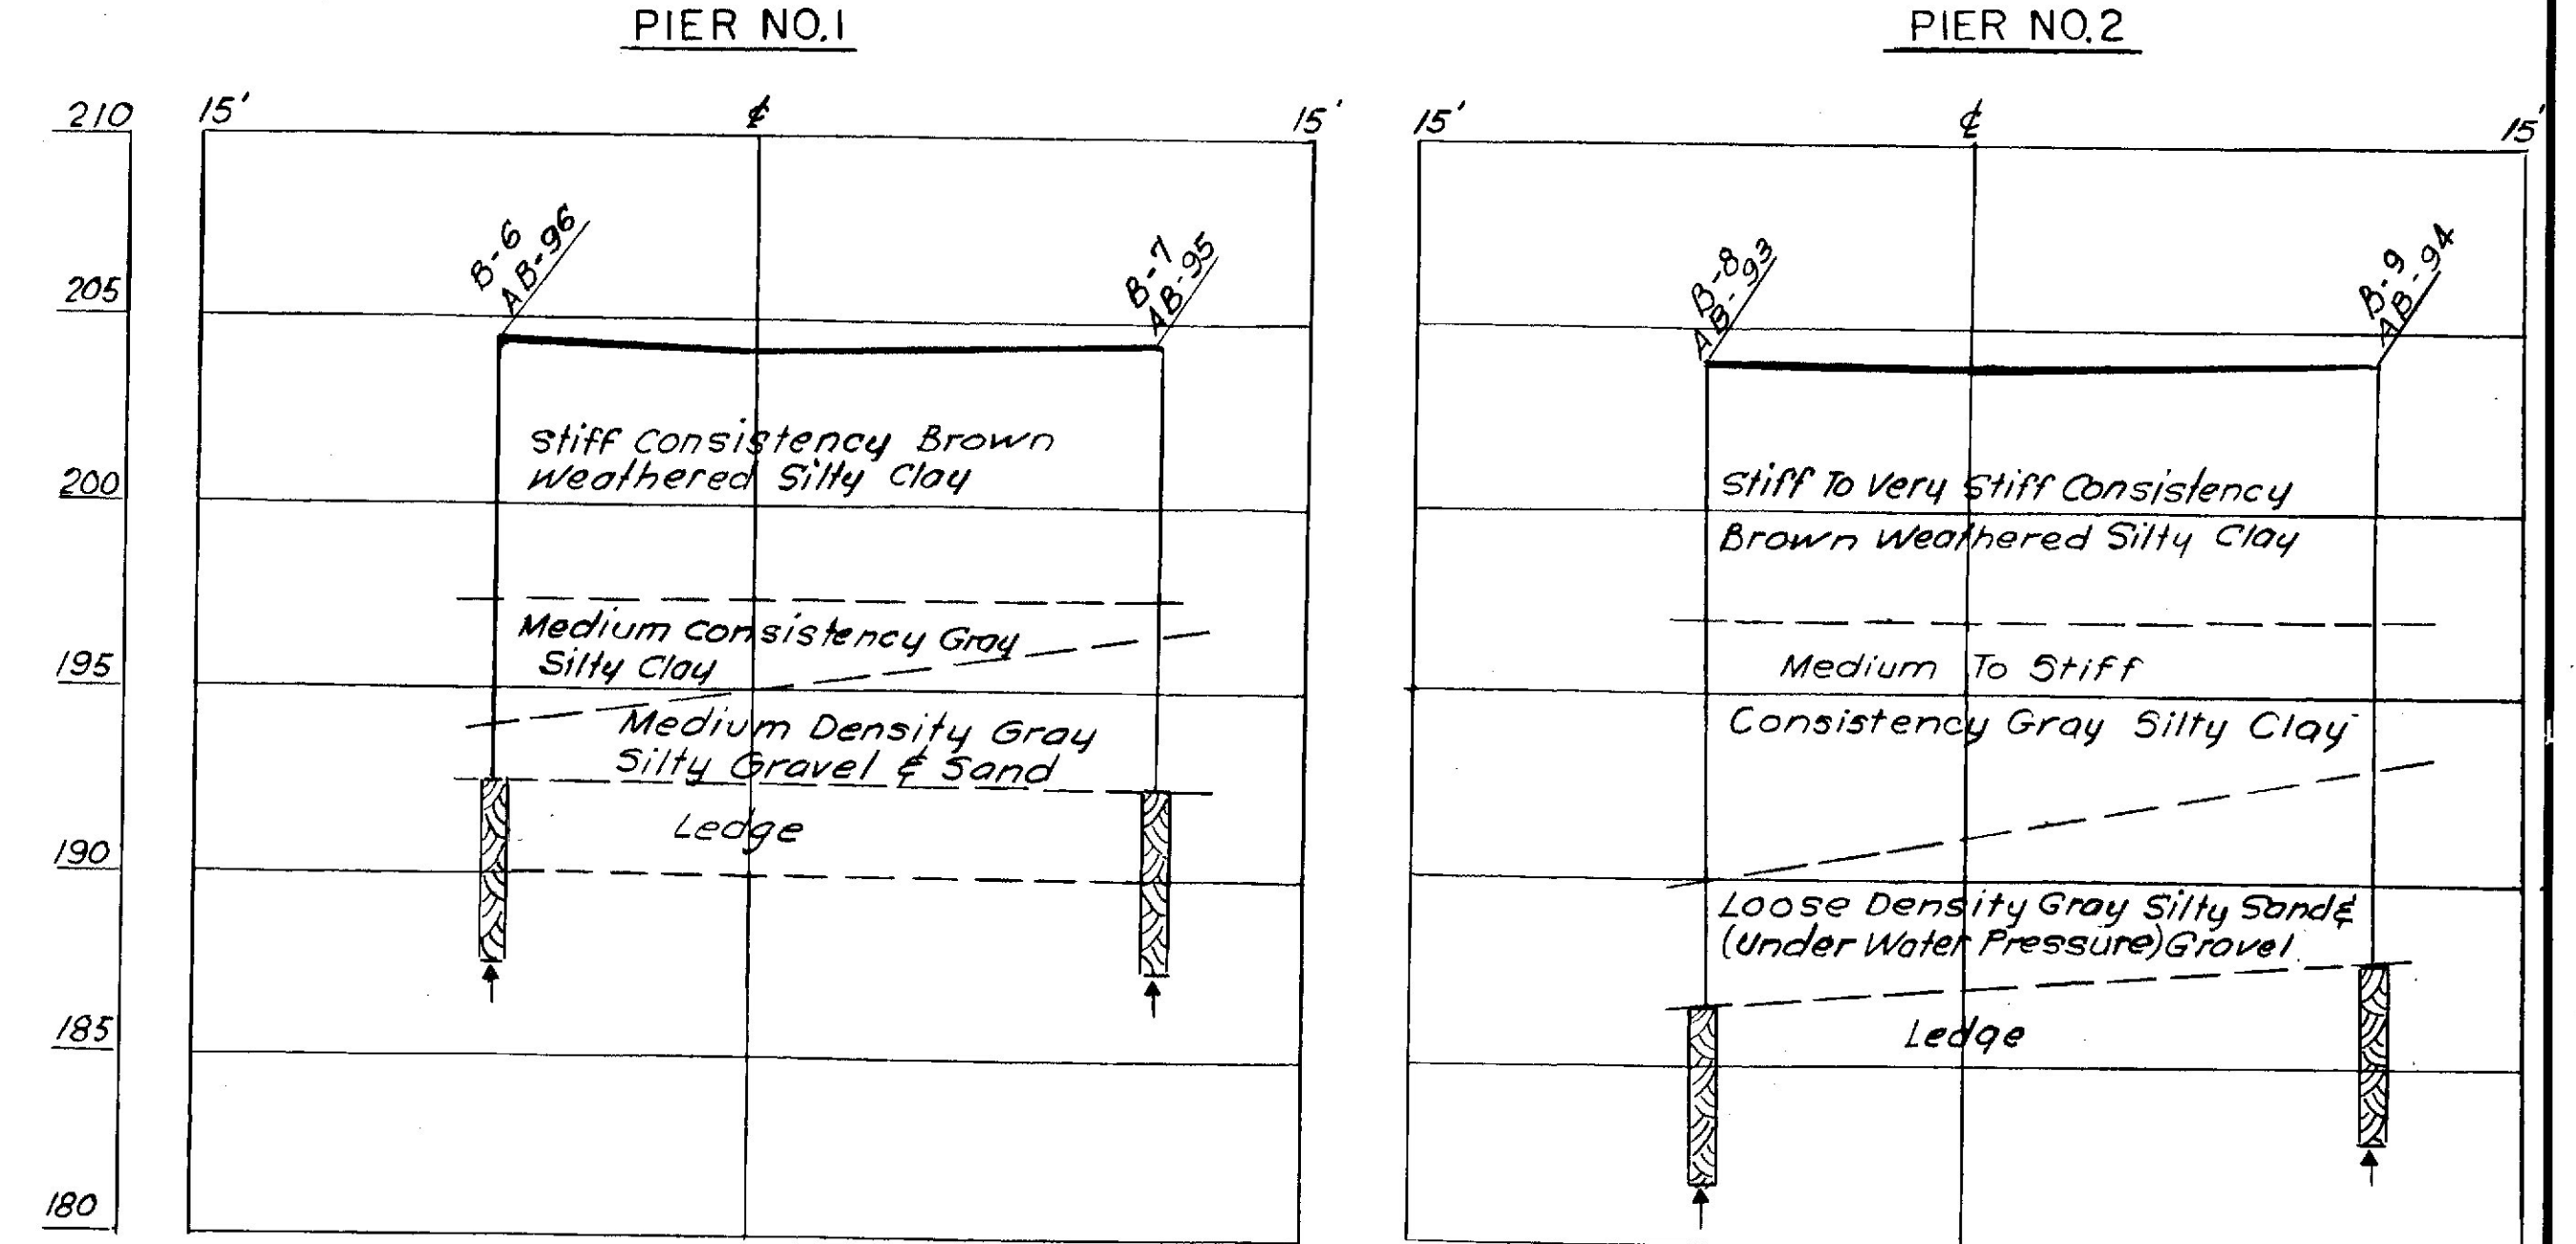 PIER NO.1
PIER NO.2
210
15'
℄
15'
15'
℄
15'
205
200
195
190
185
180
B-6
AB-96
B-7
AB-95
Stiff Consistency Brown
Weathered Silty Clay
Medium Consistency Gray
Silty Clay
Medium Density Gray
Silty Gravel & Sand
Ledge
B-8
AB-93
B-9
AB-94
Stiff To Very Stiff Consistency
Brown Weathered Silty Clay
Medium To Stiff
Consistency Gray Silty Clay
Loose Density Gray Silty Sand &
(Under Water Pressure) Gravel
Ledge